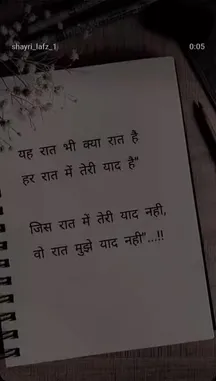 shayri_lafz_1
0:05
यह रात भी क्या रात है
हर रात में तेरी याद है"
जिस रात में तेरी याद नही,
वो रात मुझे याद नहीं"...!!